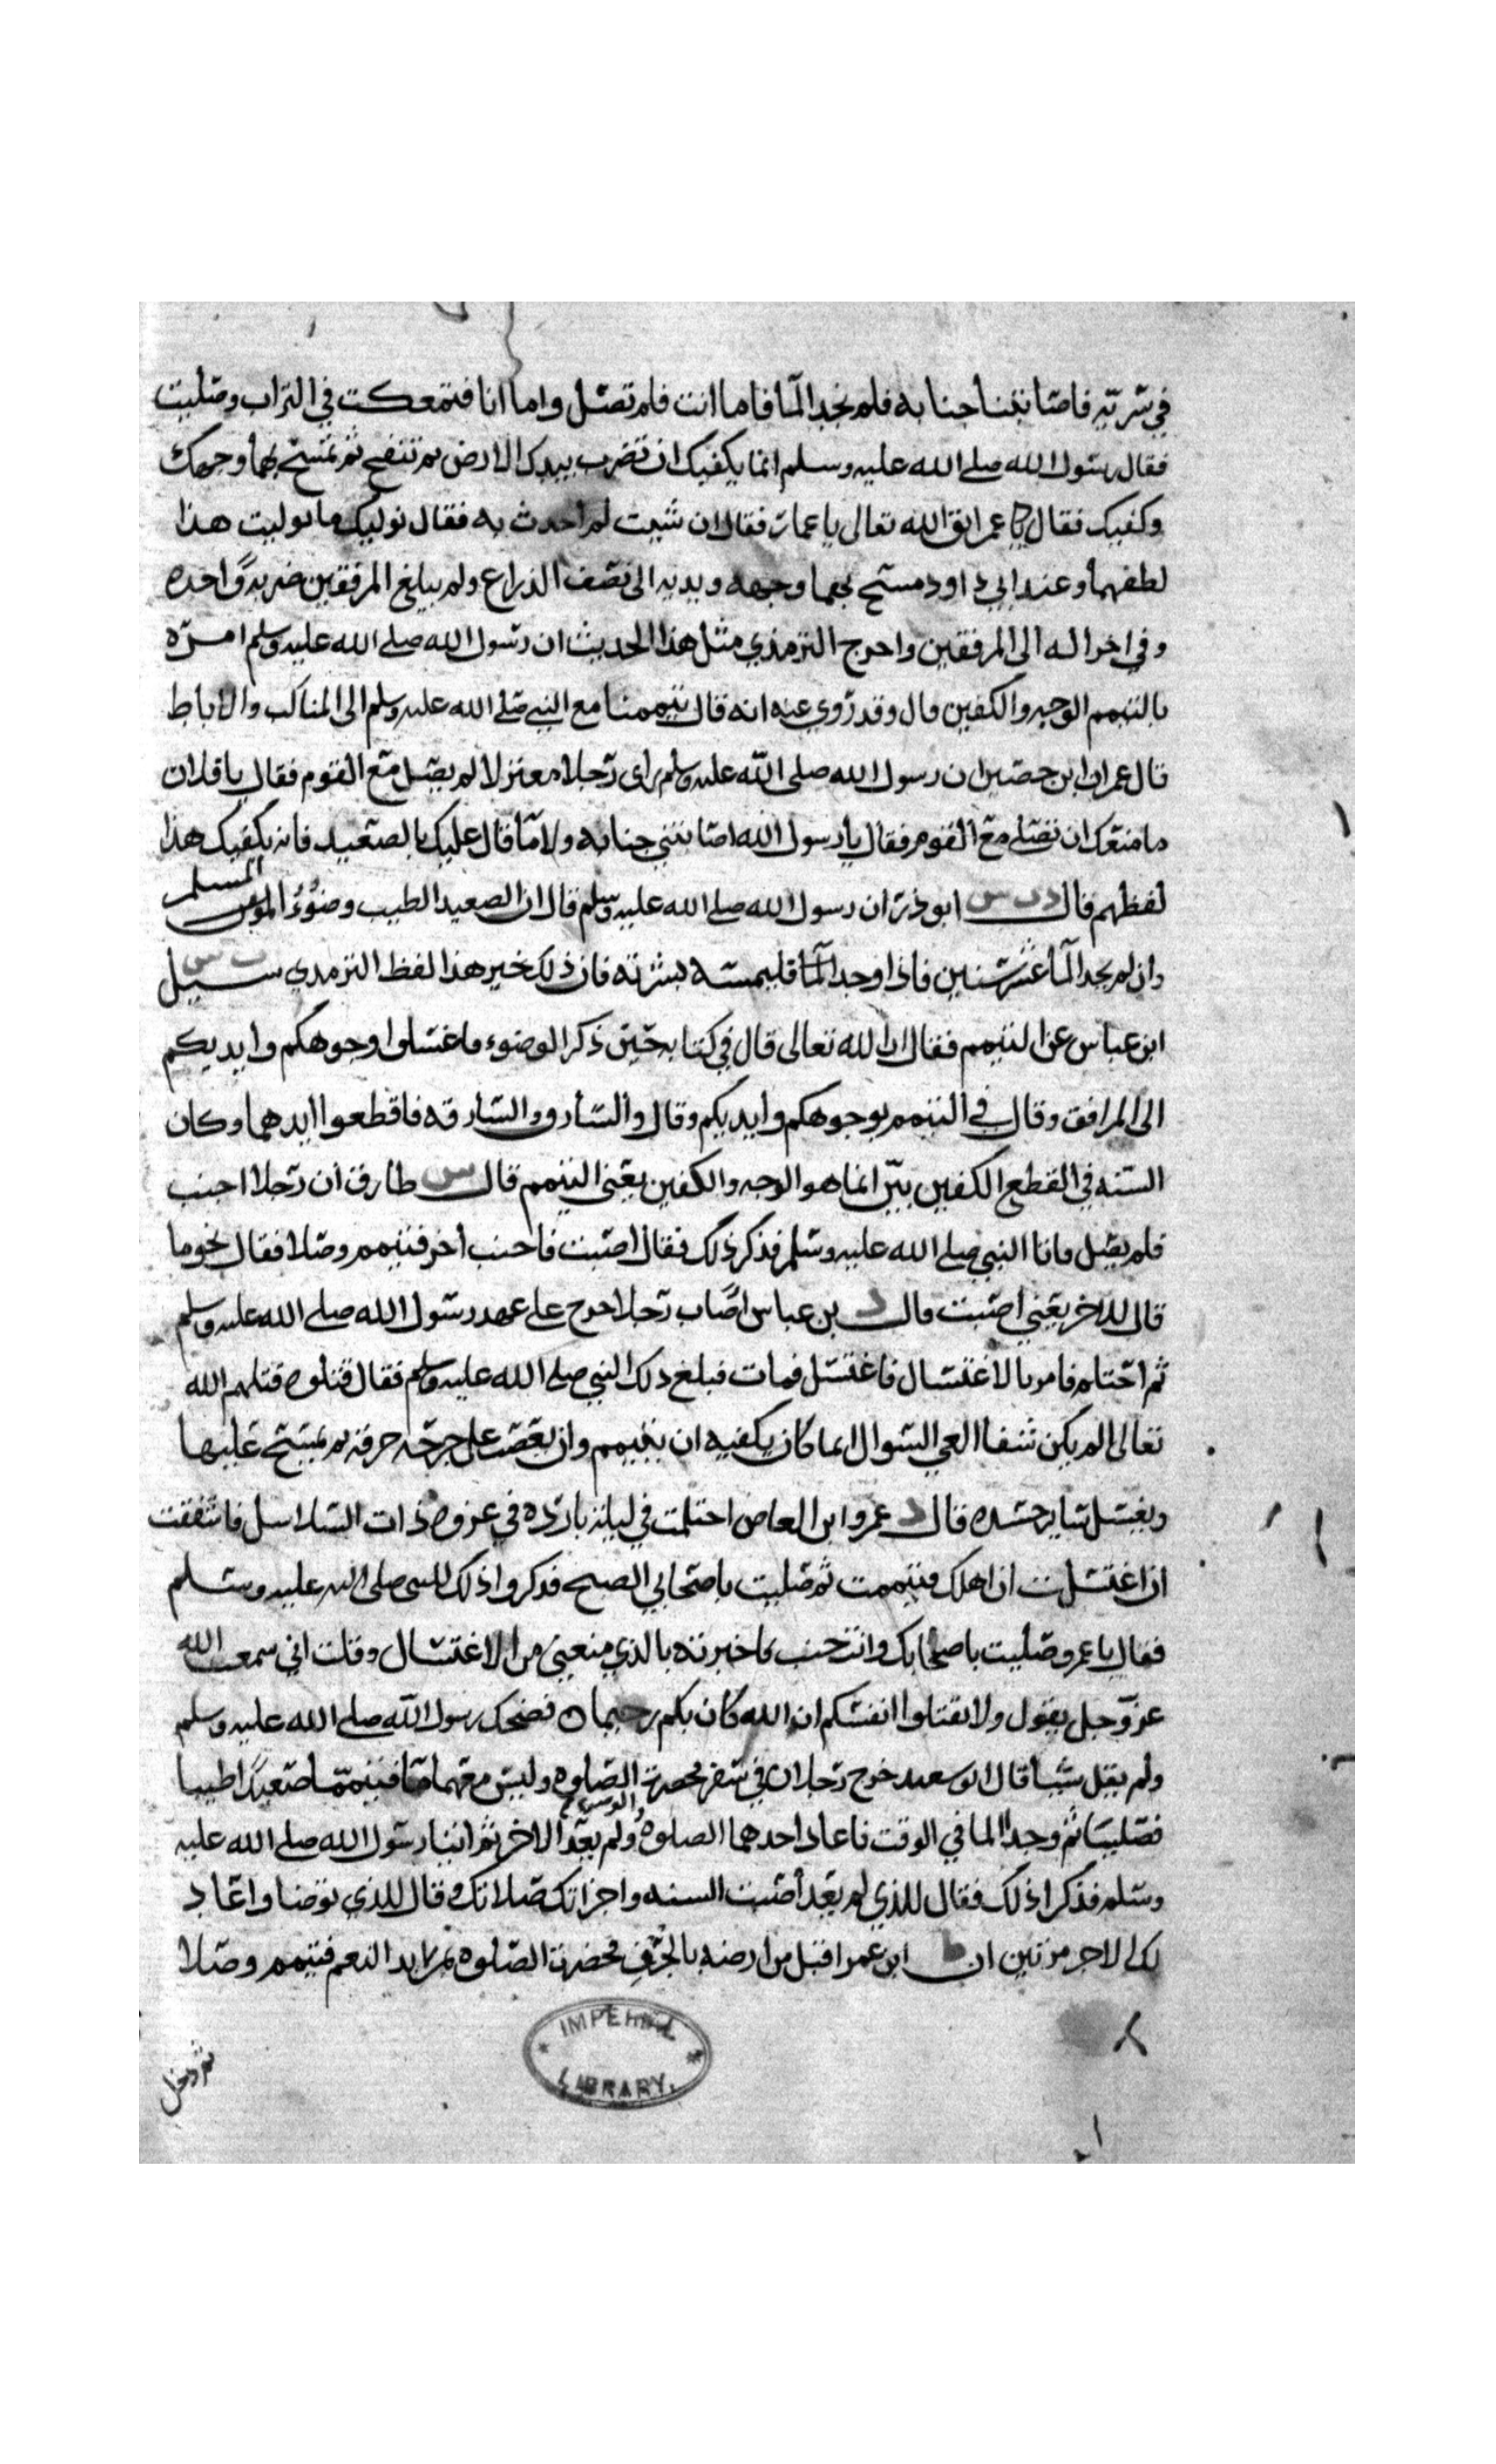 في سريه فاصابتنا جنابه فلم نجد الما فاما انت فلم تصل واما انا فتمعكت في التراب وصليت
فقال رسول الله صلى الله عليه وسلم انما يكفيك ان تضرب بيدك الارض ثم تنفح ثم تمسح بهما وجهك
وكفيك فقال عمر اتق الله تعالى يا عمار فقال ان شيت لم احدث به فقال نوليك ما توليت هذا
لطفهما وعند ابي داود مسح بهما وجهه ويديه الى نصف الذراع ولم يبلغ المرفقين ضربةً واحده
وفي اخرا له الى المرفقين واخرج الترمذي مثل هذا الحديث ان رسول الله صلى الله عليه وسلم امره
بالتيمم الوجه والكفين قال وقد روي عنه انه قال تيممنا مع النبي صلى الله عليه وسلم الى المناكب والاباط
قال عمران ابن حصين ان رسول الله صلى الله عليه وسلم راى رجلا معتزلا لم يصل مع القوم فقال يا فلان
ما منعك ان تصلي مع القوم فقال يا رسول الله اصابتني جنابه ولا ما قال عليك بالصعيد فانه يكفيك هذا
لفظهم قال د ت س ابو ذر ان رسول الله صلى الله عليه وسلم قال ان الصعيد الطيب وضوء المسلم
وان لم يجد الما عشر سنين فاذا وجد الما فليمسه بشرته فان ذلك خير هذا لفظ الترمدي ت س سيل
ابن عباس عن التيمم فقال ان الله تعالى قال في كتابه حين ذكر الوضوء فاغسلوا وجوهكم وايديكم
الى المرافق وقال في التيمم بوجوهكم وايديكم وقال والسارق والسارقه فاقطعوا ايديهما وكان
السنه في القطع الكفين بين انما هو الوجه والكفين يعني التيمم قال س طارق ان رجلا اجنب
فلم يصل فاتا النبي صلى الله عليه وسلم فذكر ذلك فقال اصبت فاجنب اخر فتيمم وصلا فقال نحو ما
قال للاخر يعني اصبت قال د بن عباس اصاب رجلا جرح على عهد رسول الله صلى الله عليه وسلم
ثم احتلم فامر بالاغتسال فاغتسل فمات فبلغ ذلك النبي صلى الله عليه وسلم فقال قتلوه قتلهم الله
تعالى الم يكن شفا العي السوال انما كان يكفيه ان يتيمم وان يعصب على جرحه خرقه ثم يمسح عليها
ويغسل ساير جسده قال د عمرو ابن العاص احتلمت في ليلة بارده في غزوه ذات السلاسل فاشفقت
ان اغتسلت ان اهلك فتيممت ثم صليت باصحابي الصبح فذكروا ذلك للنبي صلى الله عليه وسلم
فقال يا عمرو صليت باصحابك وانت جنب فاخبرته بالذي منعني من الاغتسال وقلت اني سمعت الله
عز وجل يقول ولا تقتلوا انفسكم ان الله كان بكم رحيما فضحك رسول الله صلى الله عليه وسلم
ولم يقل شيا قال ابو سعيد خرج رجلان في سفر فحضرت الصلوه وليس معهما ما فتيمما صعيدًا طيبا
فصليا ثم وجد الما في الوقت فاعاد احدهما الصلوه والوضوء ولم يعد الاخر ثم اتيا رسول الله صلى الله عليه
وسلم فذكرا ذلك فقال للذي لم يعد اصبت السنه واجزاتك صلاتك وقال للذي توضا واعاد
لك الاجر مرتين ان ط ابن عمر اقبل من ارضه بالجرف فحضرت الصلوه بمربد النعم فتيمم وصلا
ثم دخل
IMPERIAL
LIBRARY.